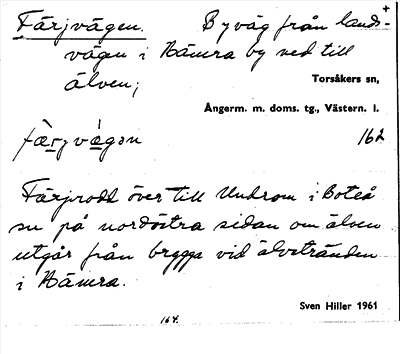 Färjvägen. Byväg från lands- +
vägen i Hämra by ned till
älven;
Torsåkers sn,
Ångerm. m. doms. tg., Västern. l.
162
Färjrodd över till Undrom i Boteå
sn på nordöstra sidan om älven
utgår från brygga vid älvstranden
i Hämra.
Sven Hiller 1961
164.